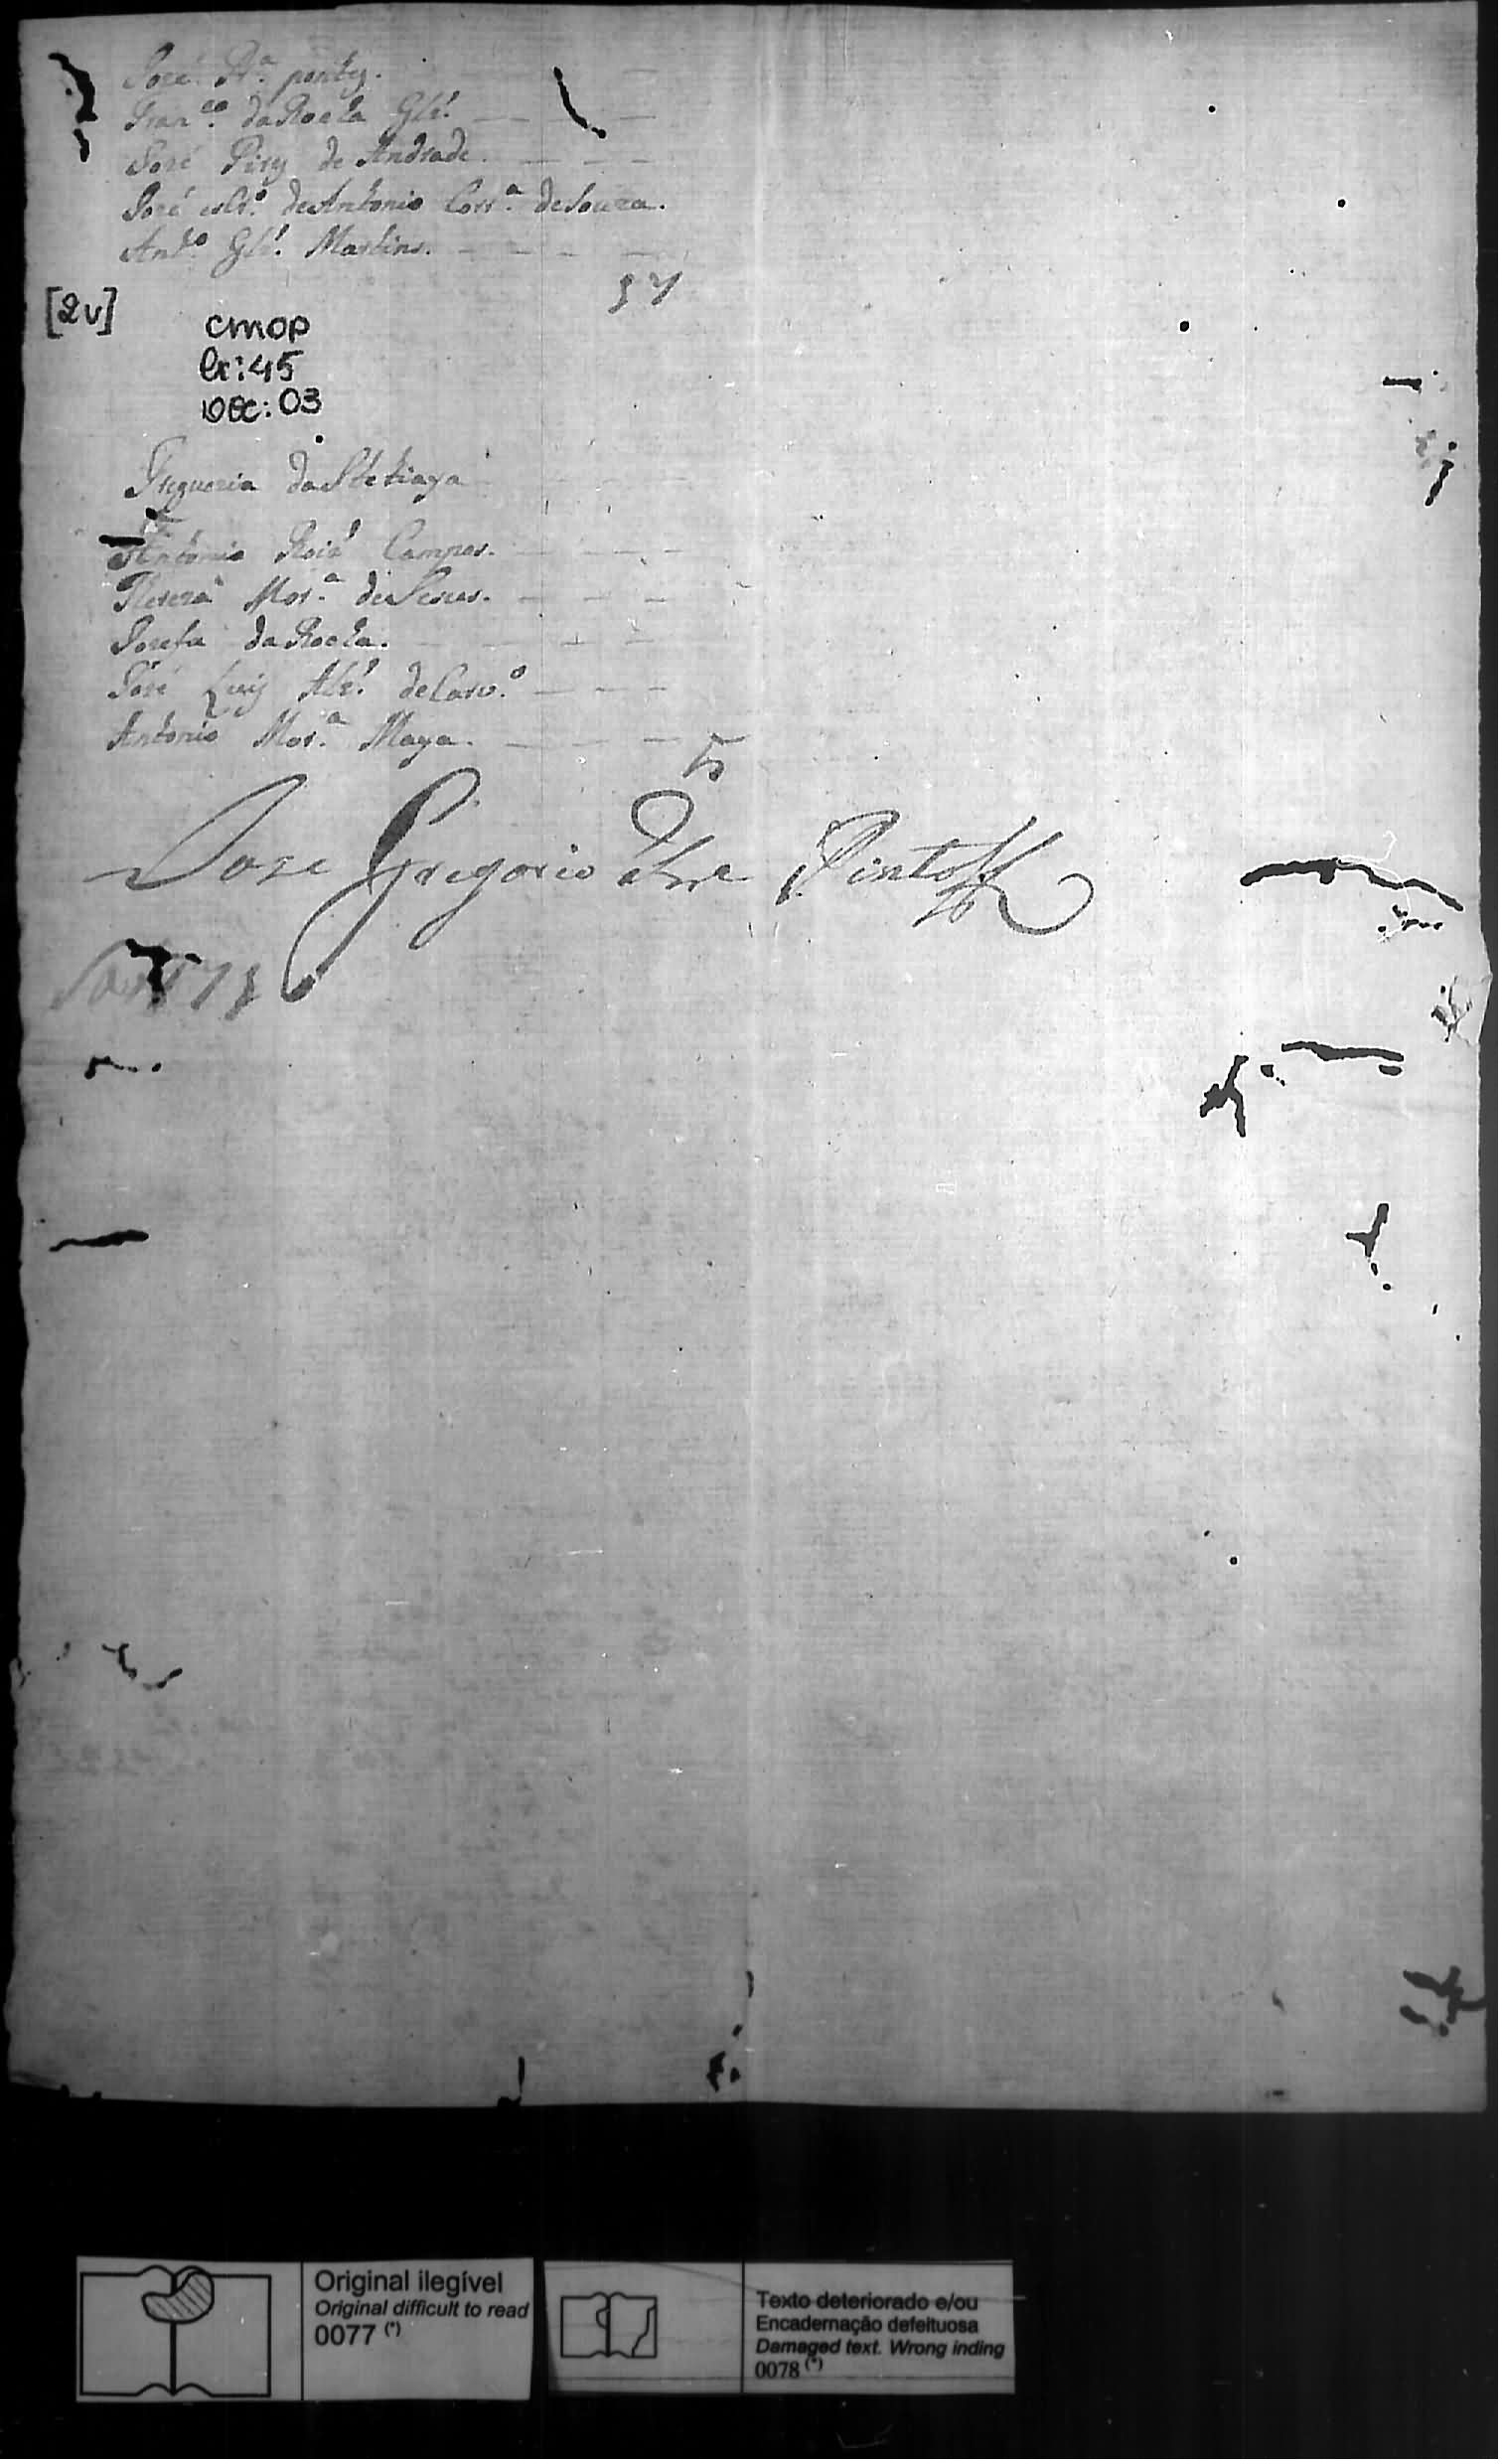 José Pr.ª pontes.
Fran.co da Rocha Glz!
José Pires de Andrade.
José escr.º de Antonio Corr.ª de Souza.
Ant.º Glz! Martins.
57
[2v]
cmop
cx: 45
DOC: 03
Freguezia da Itatiaya
Antonio Roiz! Campos.
Thereza Mor.ª de Jesus.
Josefa da Rocha.
José Luis Alz! de Carv.º
Antonio Mor.ª Maya.
5
Jose Gregorio Pinto
Original ilegível
Original difficult to read
0077 (*)
Texto deteriorado e/ou
Encadernação defeituosa
Damaged text. Wrong inding
0078 (*)